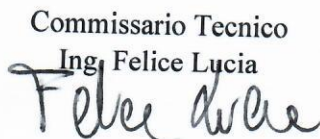 Commissario Tecnico
Ing. Felice Lucia
Felice Lucia